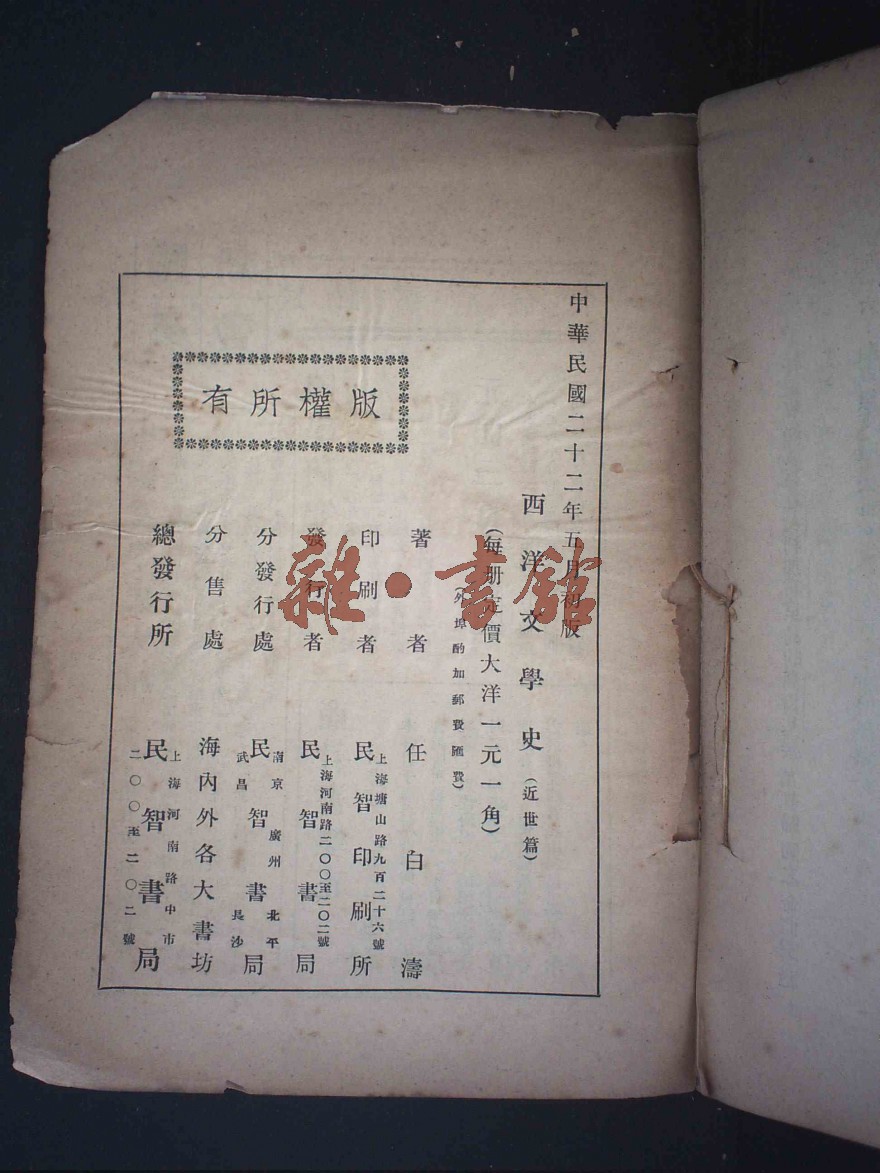 中華民國二十二年五月初版
西洋文學史(近世篇)
(每册定價大洋一元一角)
(外埠酌加郵費匯費)
著者 任白濤
印刷者 上海塘山路九百二十六號
民智印刷所
發行者 上海河南路二〇〇至二〇二號
民智書局
分發行處 南京 廣州 北平
民智書局
武昌 長沙
分售處 海內外各大書坊
總發行所 上海河南路中市
民智書局
二〇〇至二〇二號
版權所有
雜·書館